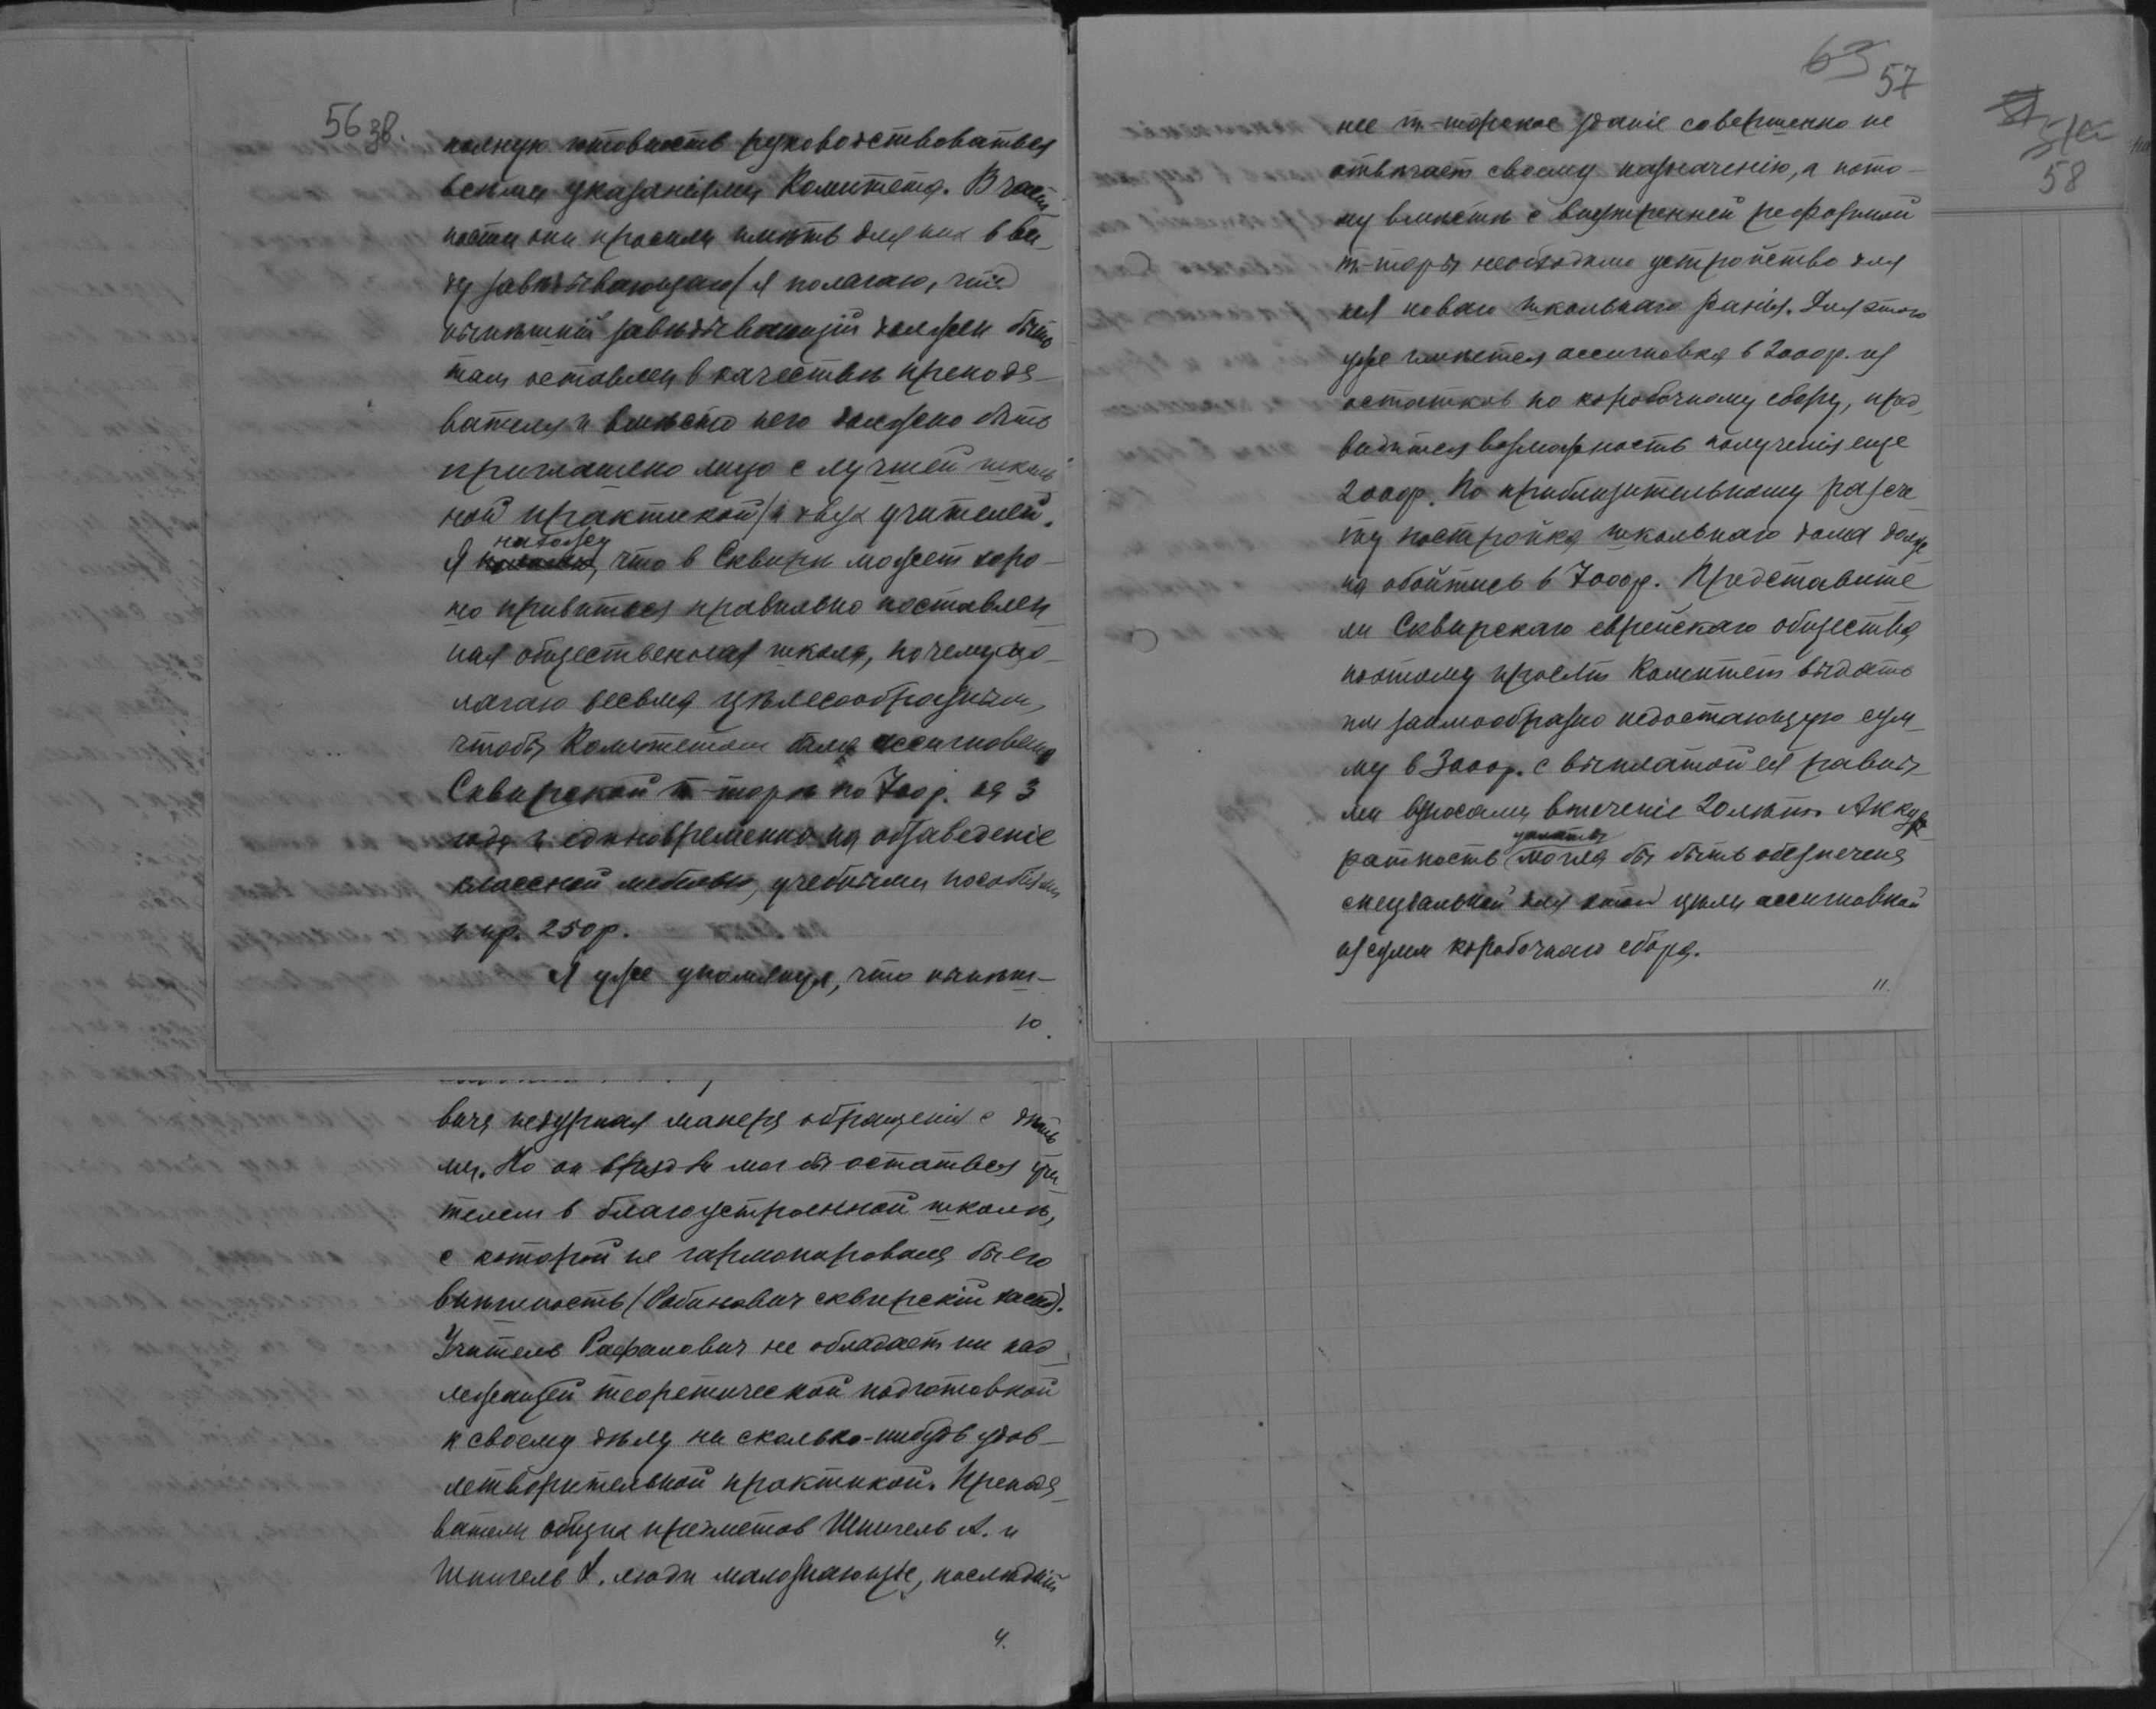 56 зв.
полную готовность руководствоваться
всѣми указаніями Комитета. В част
ности они просили имѣть для них в ви-
ду завѣдывающаго (я полагаю, что
нынѣшній завѣдывающій должен быть
там оставлен в качествѣ препода-
вателя и вмѣсто него должно быть
приглашено лицо с лучшей школь
ной практикой) и двух учителей.
Я нахожу, что в Сквирѣ может хоро-
шо привиться правильно поставлен
ная общественная школа, почему по-
лагаю весьма цѣлесообразным,
чтобы Комитетом было ассигновано
Сквирской т-торѣ по 700 р. на 3
года и единовременно на обзаведеніе
классной мебелью, учебными пособіями
и пр. 250 р.
Я уже упомянул, что нынѣш-
10.
вича недурная манера обращенія с дѣть
ми. Но он врядъ ли мог бы остаться учи
телем в благоустроенной школѣ,
с которой не гармонировала бы его
внѣшность (Рабинович сквирскій хасид).
Учитель Рафалович не обладает ни над
лежащей теоретической подготовкой
к своему дѣлу ни сколько-нибудь удов-
летворительной практикой. Препода-
ватели общих предметов Шпигель А. и
Шпигель Х. люди малознающіе, послѣдній
4.
63
57
нее т-торское зданіе совершенно не
отвѣчает своему назначенію, а пото-
му вмѣстѣ с внутренней реформой
т-торы необходимо устройство для
нея новаго школьнаго зданія. Для этого
уже имѣется ассигновка в 2000 р. из
остатков по коробочному сбору, пред
видится возможность полученія еще
2000 р. По приблизительному разсче
ту постройка школьнаго дома долж
на обойтись в 7000 р. Представите
ли Сквирскаго еврейскаго общества
поэтому просят Комитет выдать
им заимообразно недостающую сум-
му в 3000 р. с выплатой ея равны
ми взносами в теченіе 20 лѣт. Акку
ратность уплаты могла бы быть обезпечена
спеціальной для этой цѣли ассигновкой
из сумм коробочнаго сбора.
11.
58